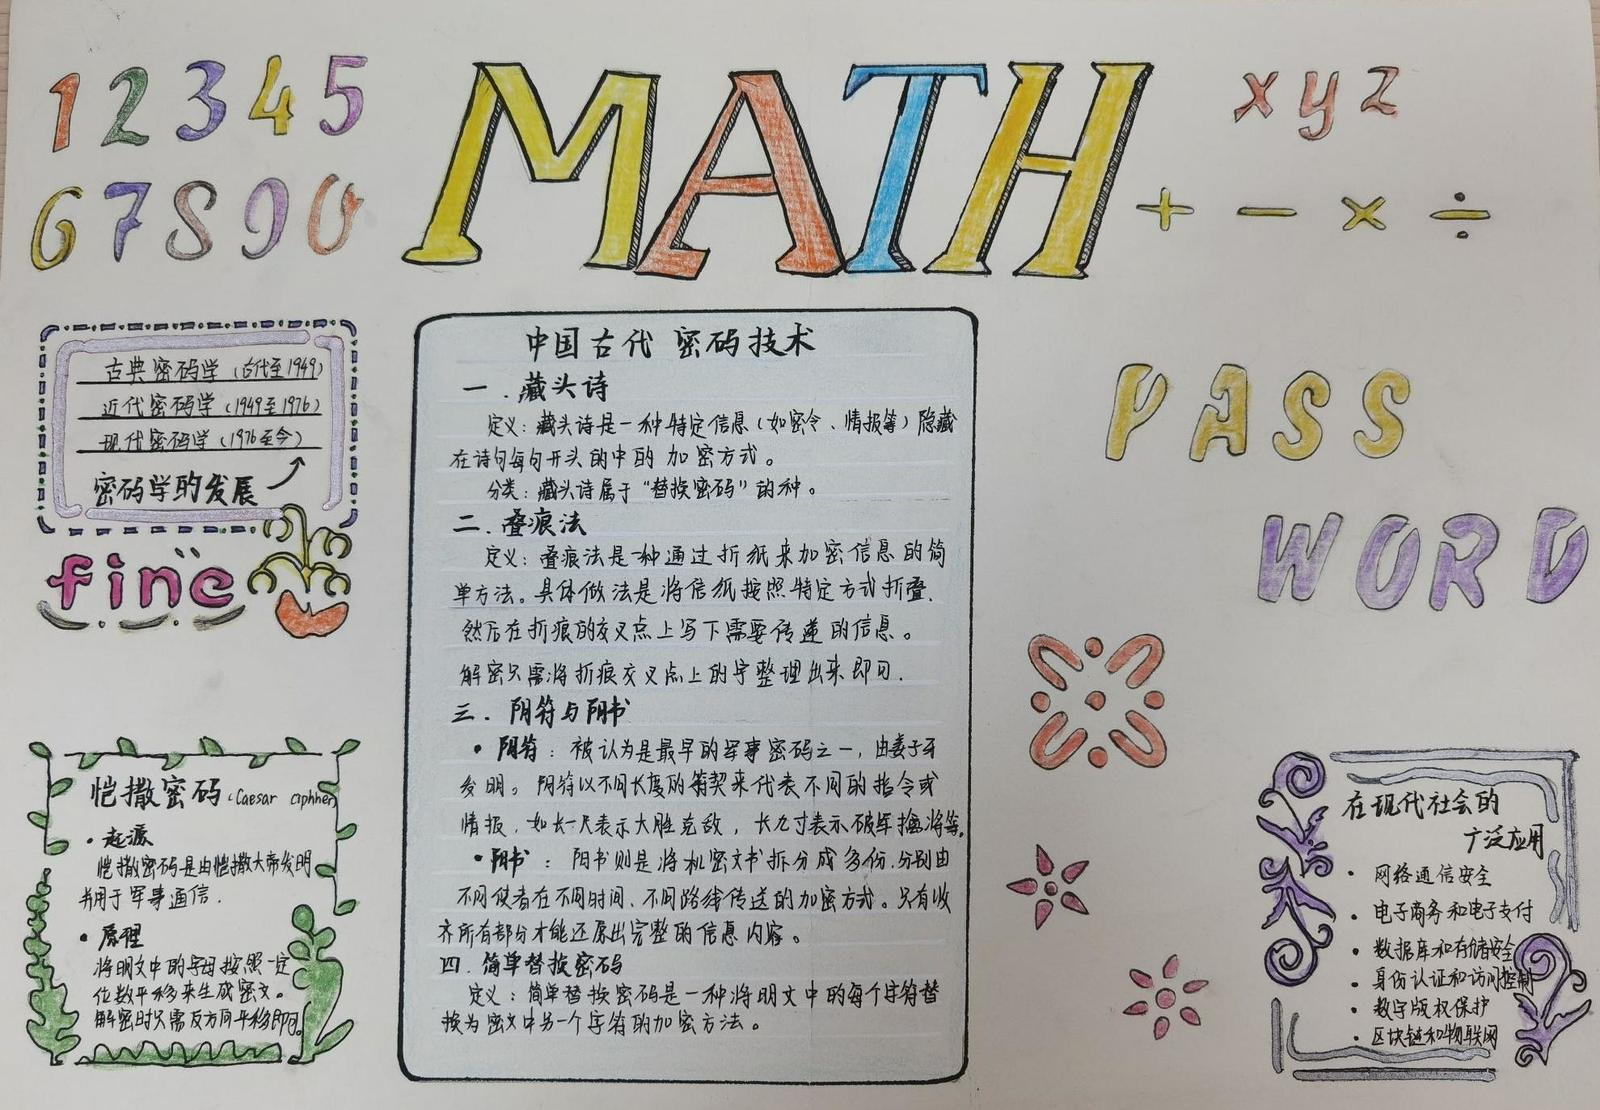 1 2 3 4 5
6 7 8 9 0
MATH
x y z
+ − × ÷
古典密码学（古代至1949）
近代密码学（1949至1976）
现代密码学（1976至今）
密码学的发展
fine
PASS
WORD
中国古代 密码技术
一．藏头诗
定义：藏头诗是一种特定信息（如密令、情报等）隐藏
在诗句每句开头的中的加密方式。
分类：藏头诗属于“替换密码”的种。
二．叠痕法
定义：叠痕法是一种通过折纸来加密信息的简
单方法。具体做法是将信纸按照特定方式折叠．
然后在折痕的交叉点上写下需要传递的信息。
解密只需将折痕交叉点上的字整理出来即可．
三．阴符与阴书
• 阴符：被认为是最早的军事密码之一，由姜子牙
发明。阴符以不同长度的符契来代表不同的指令或
情报．如长一尺表示大胜克敌，长九寸表示破军擒将等。
• 阴书：阴书则是将机密文书拆分成多份．分别由
不同使者在不同时间、不同路线传送的加密方式。只有收
齐所有部分才能还原出完整的信息内容。
四．简单替换密码
定义：简单替换密码是一种将明文中的每个字符替
换为密文中另一个字符的加密方法。
恺撒密码（Caesar ciphher）
• 起源
恺撒密码是由恺撒大帝发明
并用于军事通信．
• 原理
将明文中的字母按照一定
位数平移来生成密文。
解密时只需反方向平移即可。
在现代社会的
广泛应用
• 网络通信安全
• 电子商务和电子支付
• 数据库和存储安全
• 身份认证和访问控制
• 数字版权保护
• 区块链和物联网